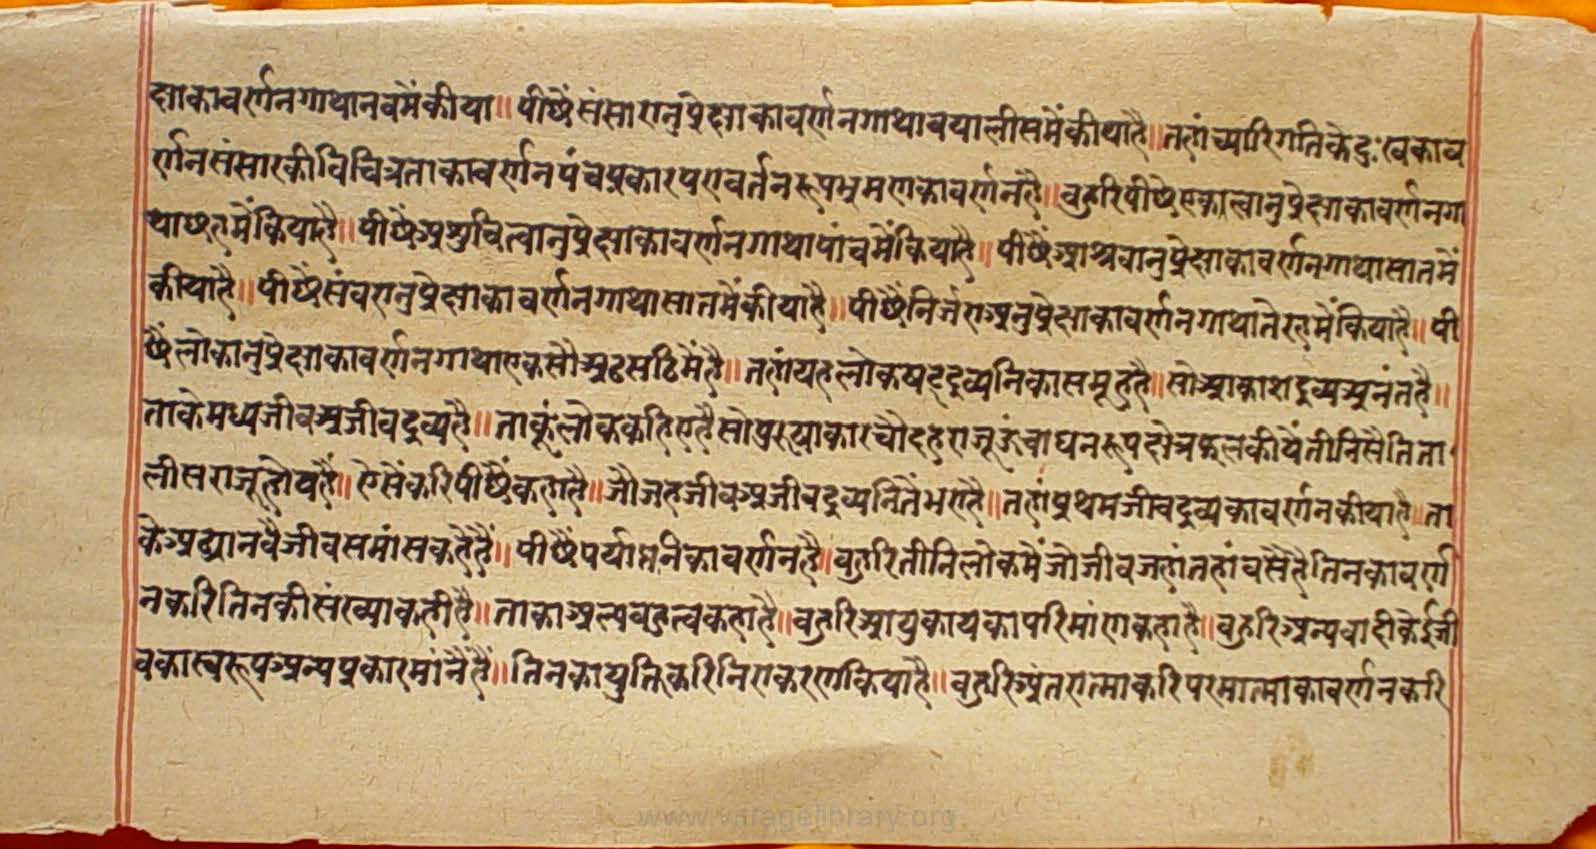 क्षाकावर्णनगाथानवमैंकीया॥ पीछैंसंसारानुप्रेक्षाकावर्णनगाथाबयालीसमैंकीयाहै॥ तहांच्यारिगतिकेदुःखकाव
र्णनसंसारकीविचित्रताकावर्णनपंचप्रकारपरावर्तनरूपभ्रमणकावर्णनहै॥ बहुरिपीछैएकत्वानुप्रेक्षाकावर्णनगा
थाछहमैंकियाहै॥ पीछैंअशुचित्वानुप्रेक्षाकावर्णनगाथापांचमैंकियाहै॥ पीछैंआश्रवानुप्रेक्षाकावर्णनगाथासातमैं
कीयाहै॥ पीछैंसंवरानुप्रेक्षाकावर्णनगाथासातमैंकीयाहै॥ पीछैंनिर्जराअनुप्रेक्षाकावर्णनगाथातेरहमैंकियाहै॥ पी
छैंलोकानुप्रेक्षाकावर्णनगाथाएकसौअठसठिमैंहै॥ तहांयहलोकषट्द्रव्यनिकासमूहहै॥ सोआकाशद्रव्यअनंतहै॥
ताकेमध्यजीवअजीवद्रव्यहै॥ ताकूंलोककहिएहैसोपुरुषाकारचौदहराजूऊंचाघनरूपक्षेत्रफलकीयेंतीनिसैतिता
लीसराजूहोयहैं॥ ऐसेंकरिपीछैंकह्याहै॥ जौजहजीवअजीवद्रव्यनितेंभरयाहै॥ तहांप्रथमजीवद्रव्यकावर्णनकीयाहै॥ ता
केअठ्यानवैजीवसमांसकहेहैं॥ पीछैंपर्याप्तनिकावर्णनहै॥ बहुरितीनिलोकमैंजोजीवजहांतहांवसैहैतिनकावर्ण
नकरितिनकीसंख्याकहीहै॥ ताकाअल्पबहुत्वकह्याहै॥ बहुरिआयुकायकापरिमांणकह्याहै॥ बहुरिअन्यवादीकेईजी
वकास्वरूपअन्यप्रकारमांनैंहैं॥ तिनकायुक्तिकरिनिराकरणकियाहै॥ बहुरिअंतरात्माकरिपरमात्माकावर्णनकरि
www.vitragelibrary.org